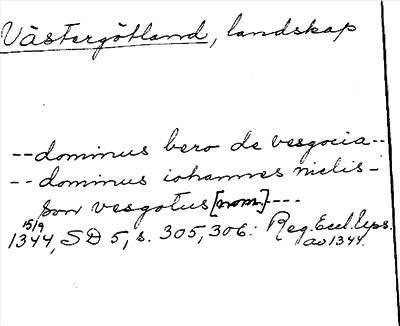 Västergötland, landskap
-- dominus bero de vesgocia --
-- dominus iohannes nielis-
son vesgotus [nom.] ---
15/9
1344, SD 5, s. 305, 306: Reg. Eccl. Ups.
av 1344.